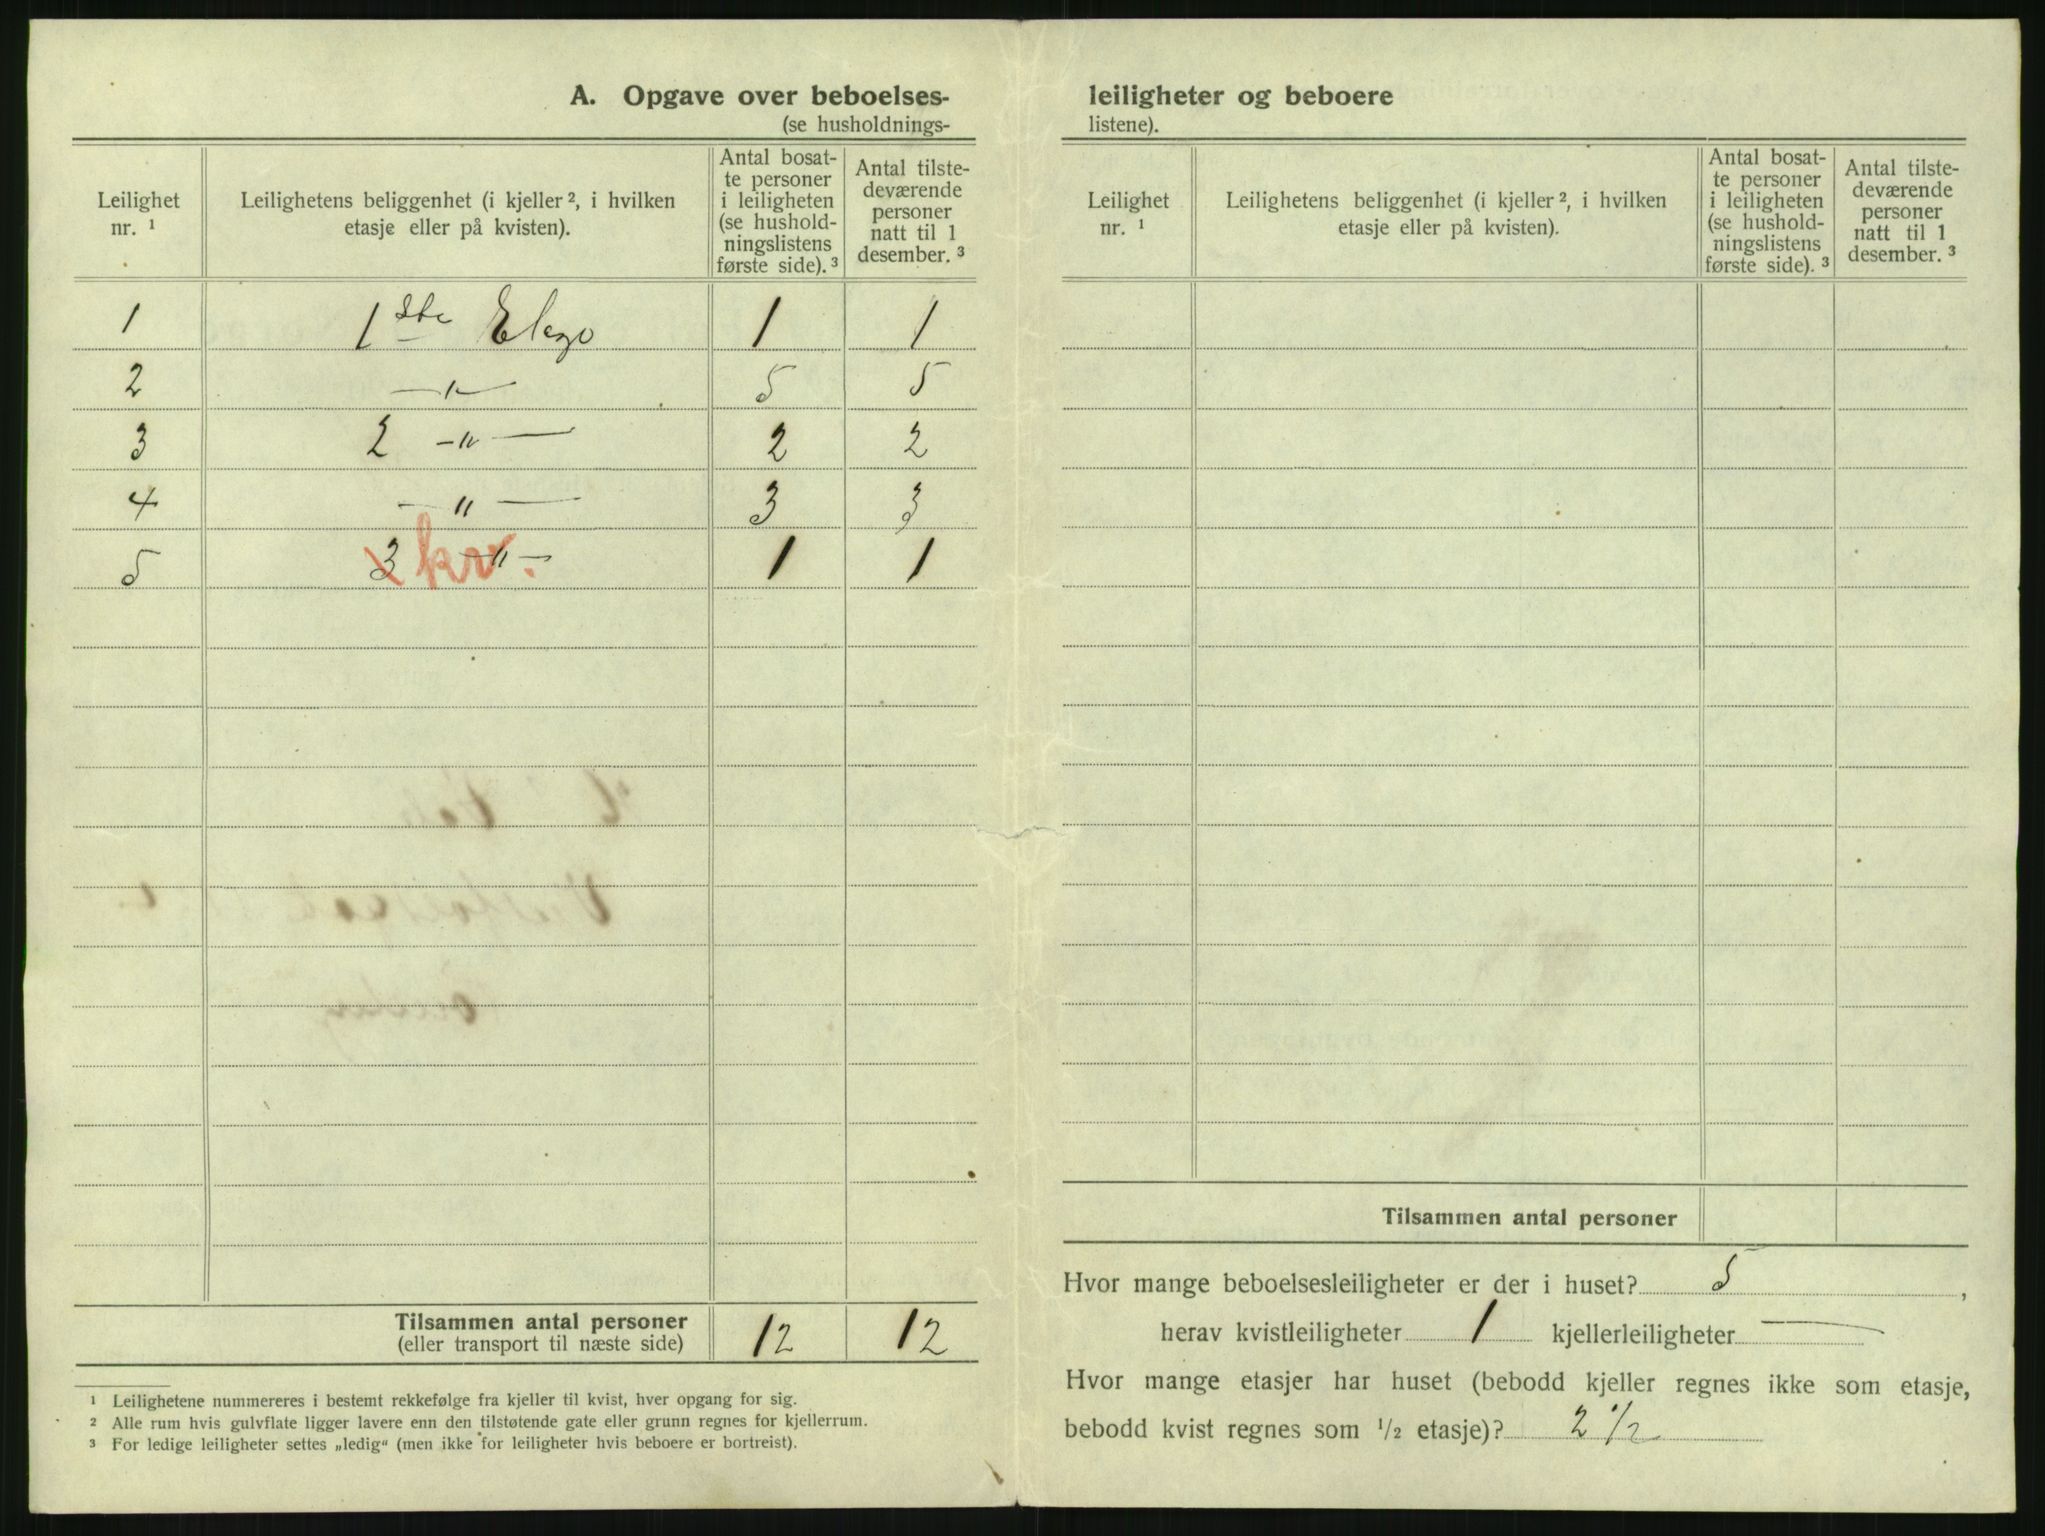 A. Opgave over beboelses-
(se husholdnings-
Leilighet nr. ¹ | Leilighetens beliggenhet (i kjeller ², i hvilken etasje eller på kvisten). | Antal bosatte personer i leiligheten (se husholdningslistens første side). ³ | Antal tilstedeværende personer natt til 1 desember. ³
1 | 1ste Etage | 1 | 1
2 | —"— | 5 | 5
3 | 2 —"— | 2 | 2
4 | —"— | 3 | 3
5 | 3 —"— kv. | 1 | 1
Tilsammen antal personer 12 | 12
(eller transport til næste side)
¹ Leilighetene nummereres i bestemt rekkefølge fra kjeller til kvist, hver opgang for sig.
² Alle rum hvis gulvflate ligger lavere enn den tilstøtende gate eller grunn regnes for kjellerrum.
³ For ledige leiligheter settes „ledig“ (men ikke for leiligheter hvis beboere er bortreist).
leiligheter og beboere
listene).
Leilighet nr. ¹ | Leilighetens beliggenhet (i kjeller ², i hvilken etasje eller på kvisten). | Antal bosatte personer i leiligheten (se husholdningslistens første side). ³ | Antal tilstedeværende personer natt til 1 desember. ³
Tilsammen antal personer
Hvor mange beboelsesleiligheter er der i huset? 5 ,
herav kvistleiligheter 1 kjellerleiligheter —
Hvor mange etasjer har huset (bebodd kjeller regnes ikke som etasje,
bebodd kvist regnes som ½ etasje)? 2 ½